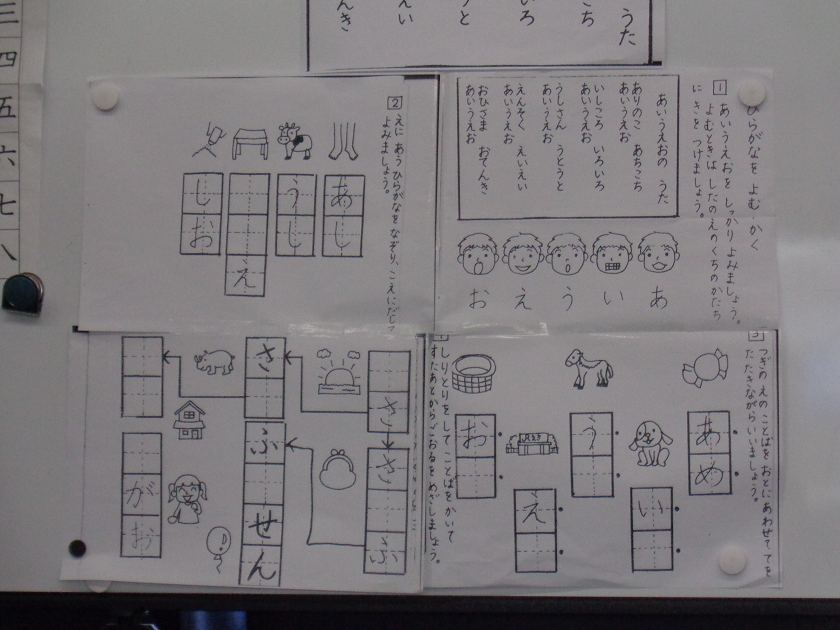 うた
こち
いろ
うと
えい
んき
三
四
五
六
七
八
ひらがなを よむ かく
1
あいうえおを しっかり よみましょう。
よむときは したの えの くちの かたち
に きを つけましょう。
あいうえおの うた
ありのこ あちこち
あいうえお
いしころ いろいろ
あいうえお
うしさん うとうと
あいうえお
えんそく えいえい
あいうえお
おひさま おてんき
あいうえお
あ
い
う
え
お
2
えに あう ひらがなを なぞり、こえに だして
よみましょう。
あし
うし
え
しお
3
つぎの えの ことばを おとに あわせて てを
たたきながら いいましょう。
あめ
い
う
え
お
しりとりを して ことばを かいて
すたあとから ごおるを めざしましょう。
さ
さ
ふ
さ
ふ
せん
がお